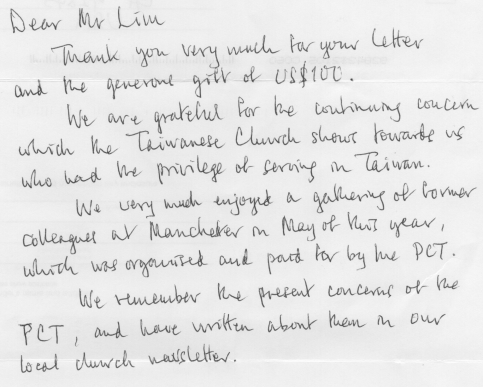 Dear Mr Lim
Thank you very much for your letter
and the generous gift of US$100.
We are grateful for the continuing concern
which the Taiwanese Church shows towards us
who had the privilege of serving in Taiwan.
We very much enjoyed a gathering of former
colleagues at Manchester in May of this year,
which was organised and paid for by the PCT.
We remember the present concerns of the
PCT, and have written about them in our
local church newsletter.